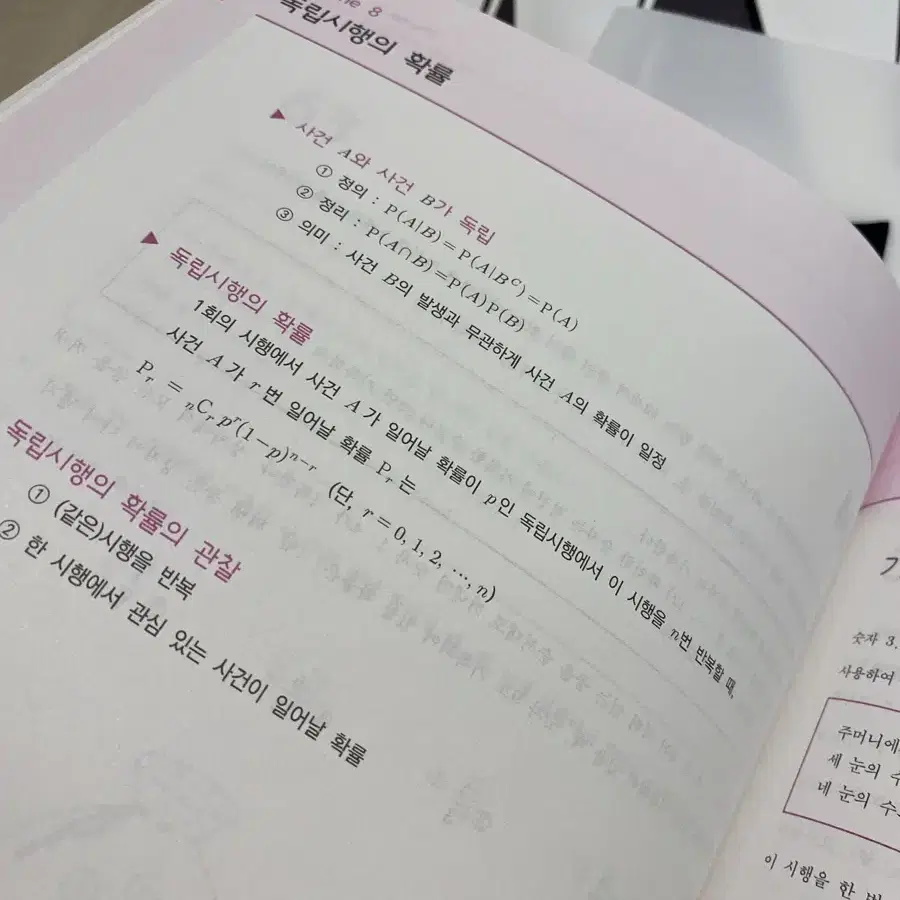 8
독립시행의 확률
▶ 사건 A와 사건 B가 독립
① 정의 : P(A|B)=P(A|Bᶜ)=P(A)
② 정리 : P(A∩B)=P(A)P(B)
③ 의미 : 사건 B의 발생과 무관하게 사건 A의 확률이 일정
▶ 독립시행의 확률
1회의 시행에서 사건 A가 일어날 확률이 p인 독립시행에서 이 시행을 n번 반복할 때,
사건 A가 r번 일어날 확률 Pᵣ는
Pᵣ = ₙCᵣ pʳ(1-p)ⁿ⁻ʳ (단, r=0, 1, 2, …, n)
독립시행의 확률의 관찰
① (같은)시행을 반복
② 한 시행에서 관심 있는 사건이 일어날 확률
숫자 3,
사용하여
주머니에
세 눈의 수
네 눈의 수
이 시행을 한 번